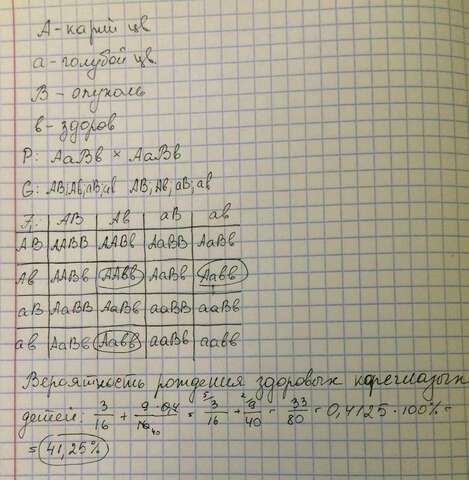 А - карий цв
а - голубой цв.
В - опухоль
в - здоров
P: АаВв × АаВв
G: АВ; Ав; аВ; ав АВ; Ав; аВ; ав
F₁ АВ Ав аВ ав
АВ ААВВ ААВв АаВВ АаВв
Ав ААВв ААвв АаВв Аавв
аВ АаВВ АаВв ааВВ ааВв
ав АаВв Аавв ааВв аавв
Вероятность рождения здоровых кареглазых
детей: 3/16 + 9·0,4/16 = 3/16 + 9/40 = 33/80 = 0,4125·100% =
= 41,25%